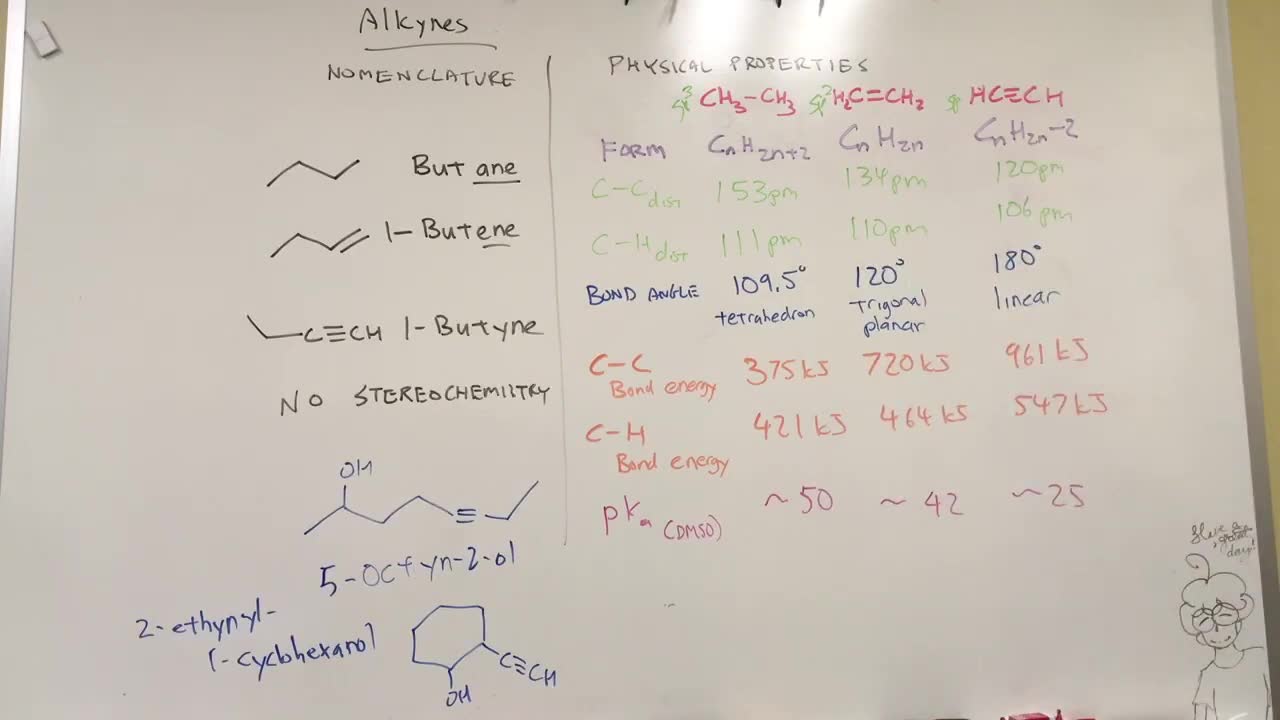 Alkynes
NOMENCLATURE
Butane
1-Butene
C≡CH 1-Butyne
NO STEREOCHEMISTRY
OH
5-Octyn-2-ol
2-ethynyl-
1-cyclohexanol
C≡CH
OH
PHYSICAL PROPERTIES
sp³ CH₃-CH₃ sp² H₂C=CH₂ sp HC≡CH
FORM CnH2n+2 CnH2n CnH2n-2
C-C dist 153pm 134pm 120pm
C-H dist 111pm 110pm 106pm
BOND ANGLE 109.5° 120° 180°
tetrahedron trigonal linear
planar
C-C 375kJ 720kJ 961kJ
Bond energy
C-H 421kJ 464kJ 547kJ
Bond energy
pKa (DMSO) ~50 ~42 ~25
Have a
great
day!